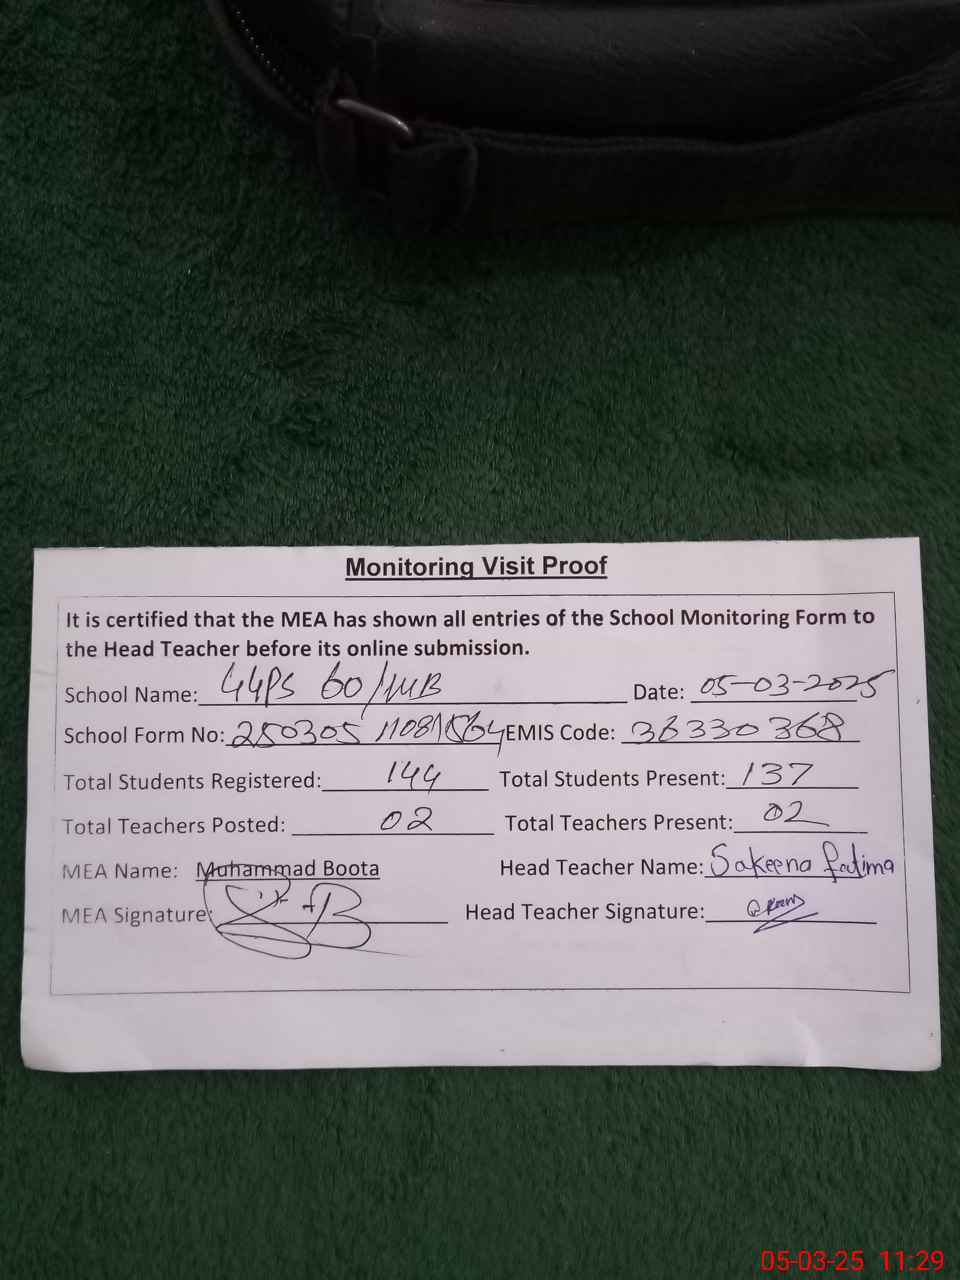 Monitoring Visit Proof
It is certified that the MEA has shown all entries of the School Monitoring Form to
the Head Teacher before its online submission.
School Name: GGPS 60/MB Date: 05-03-2025
School Form No: 250305 EMIS Code: 36330368
Total Students Registered: 144 Total Students Present: 137
Total Teachers Posted: 02 Total Teachers Present: 02
MEA Name: Muhammad Boota Head Teacher Name: Sakeena Fatima
MEA Signature: Head Teacher Signature:
05-03-25 11:29